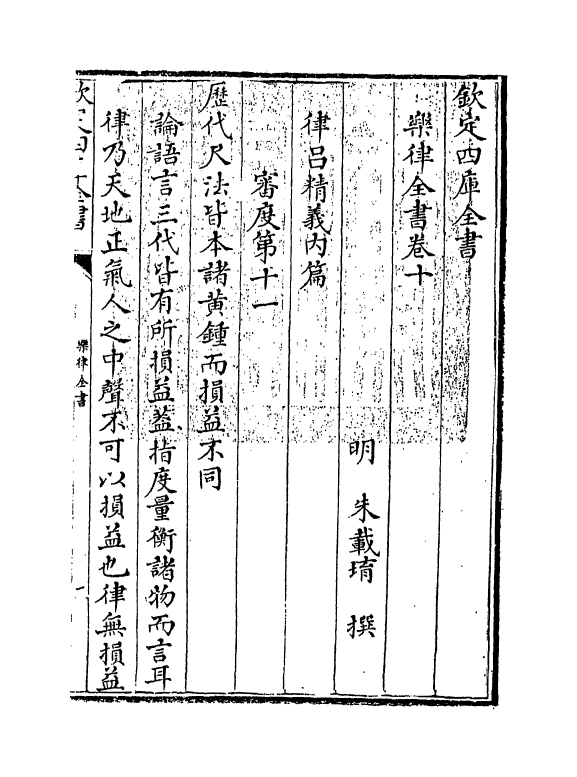 欽定四庫全書
樂律全書卷十
明 朱載堉 撰
律呂精義內篇
審度第十一
歷代尺法皆本諸黄鍾而損益不同
論語言三代皆有所損益蓋指度量衡諸物而言耳
律乃天地正氣人之中聲不可以損益也律無損益
欽定四庫全書
樂律全書
一